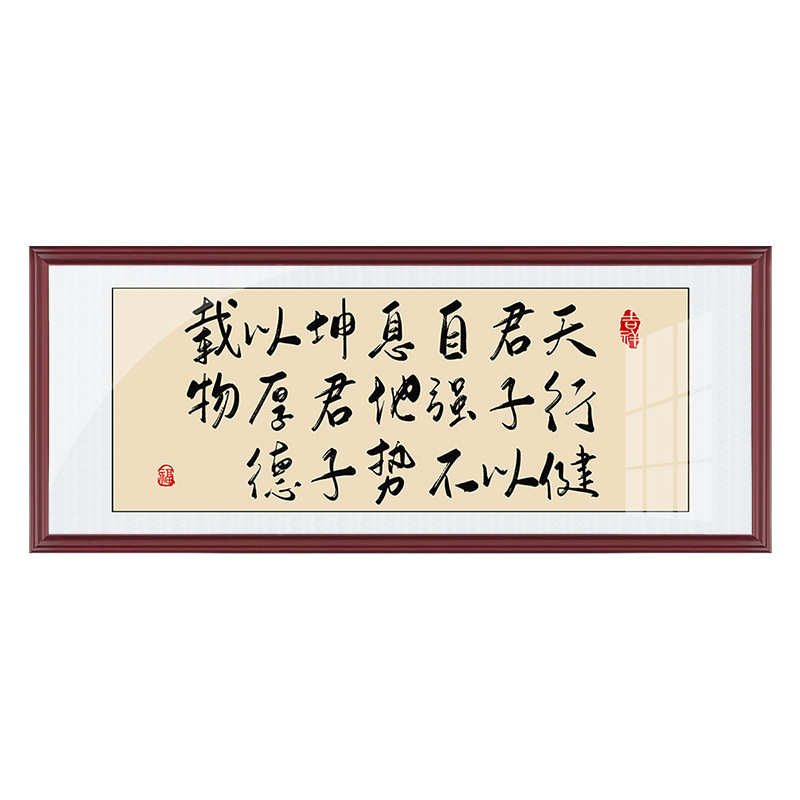 吉祥
天行健
君子以
自强不
息地势
坤君子
以厚德
载物